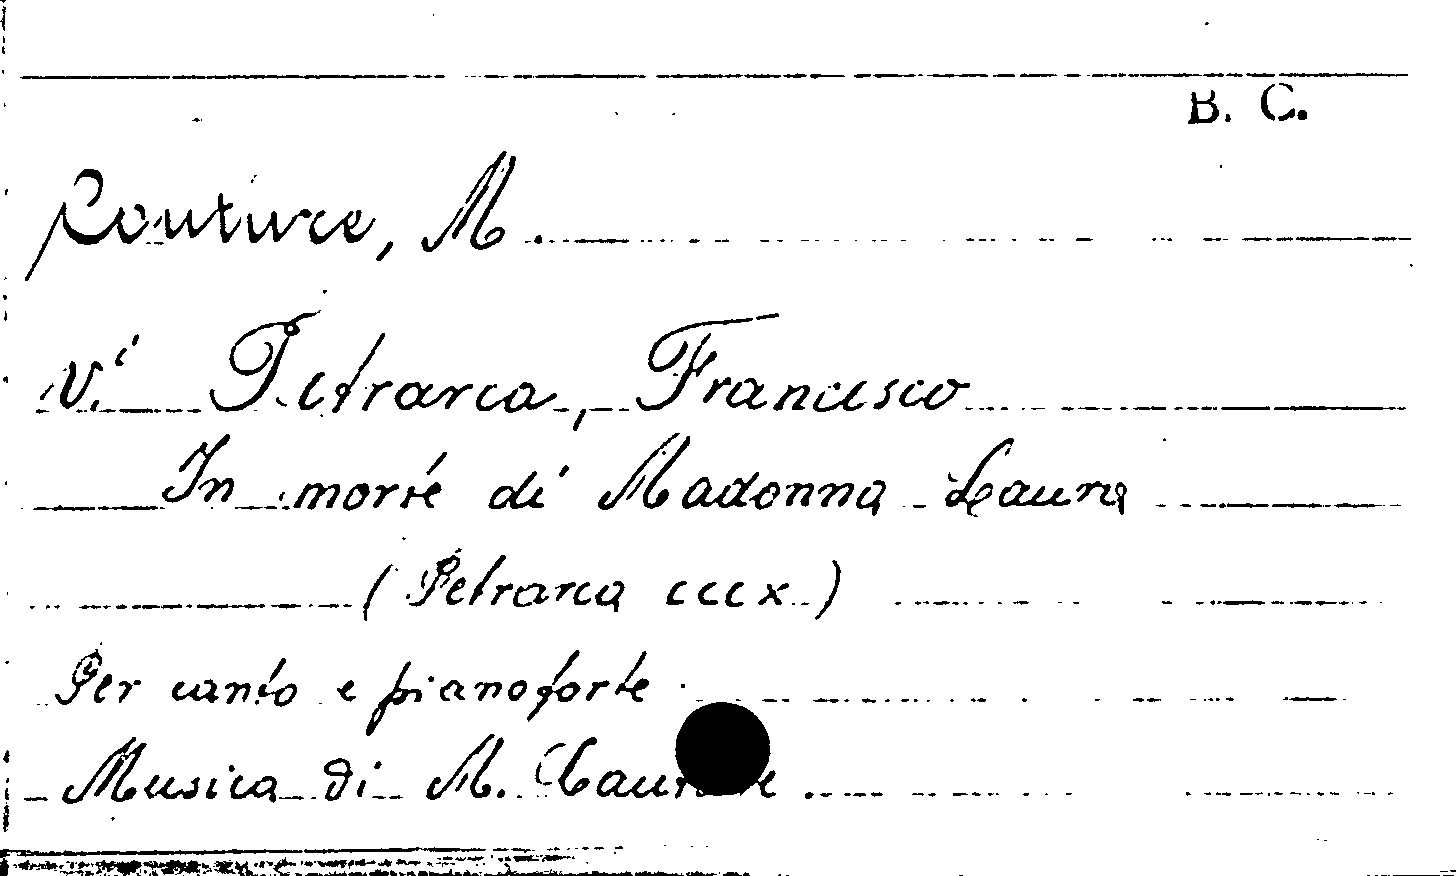 B. C.
Couture, M.
V. Petrarca, Francesco
In morte di Madonna Laura
(Petrarca cccx)
Per canto e pianoforte.
Musica di M.